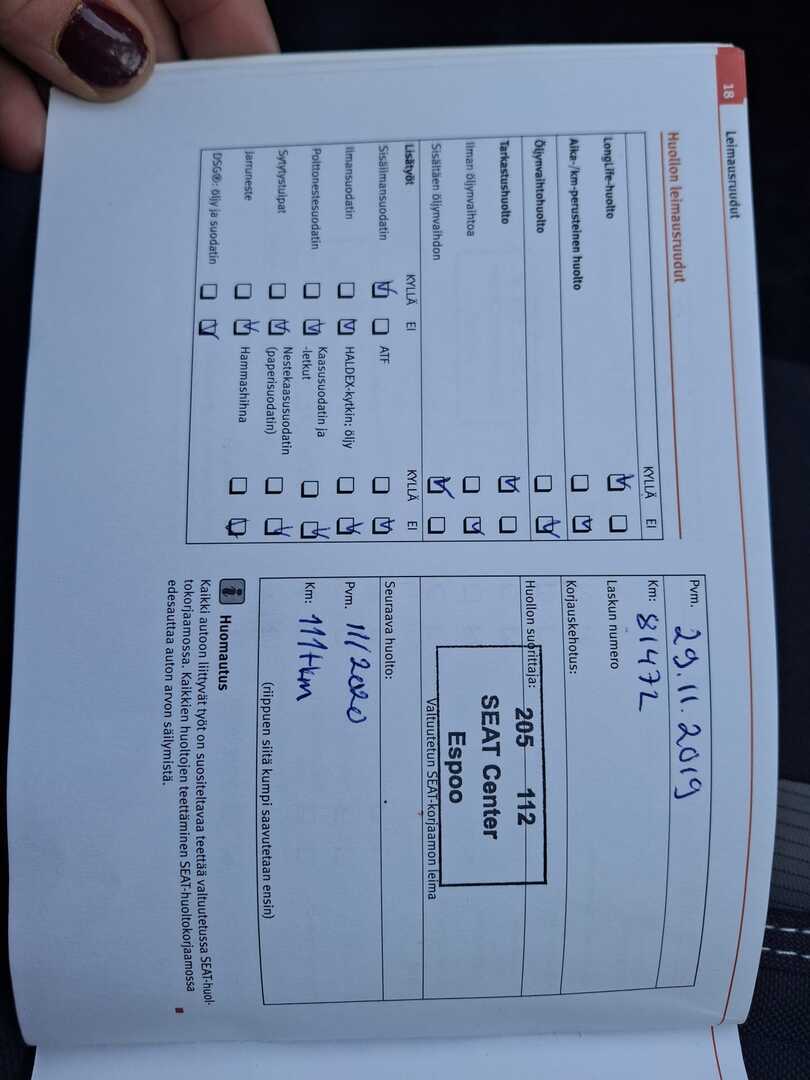 18
Leimausruudut
Huollon leimausruudut
KYLLÄ EI
LongLife-huolto
Aika-/km-perusteinen huolto
Öljynvaihtohuolto
Tarkastushuolto
Ilman öljynvaihtoa
Sisältäen öljynvaihdon
Lisätyöt KYLLÄ EI KYLLÄ EI
Sisäilmansuodatin ATF
Ilmansuodatin HALDEX-kytkin: öljy
Polttonestesuodatin Kaasusuodatin ja
-letkut
Sytytystulpat Nestekaasusuodatin
(paperisuodatin)
Jarruneste Hammashihna
DSG®: öljy ja suodatin
Pvm. 29.11.2019
Km: 81472
Laskun numero
Korjauskehotus:
Huollon suorittaja:
205 112
SEAT Center
Espoo
Valtuutetun SEAT-korjaamon leima
Seuraava huolto:
Pvm. 11/2020
Km: 111tkm
(riippuen siitä kumpi saavutetaan ensin)
i Huomautus
Kaikki autoon liittyvät työt on suositeltavaa teettää valtuutetussa SEAT-huol-
tokorjaamossa. Kaikkien huoltojen teettäminen SEAT-huoltokorjaamossa
edesauttaa auton arvon säilymistä.